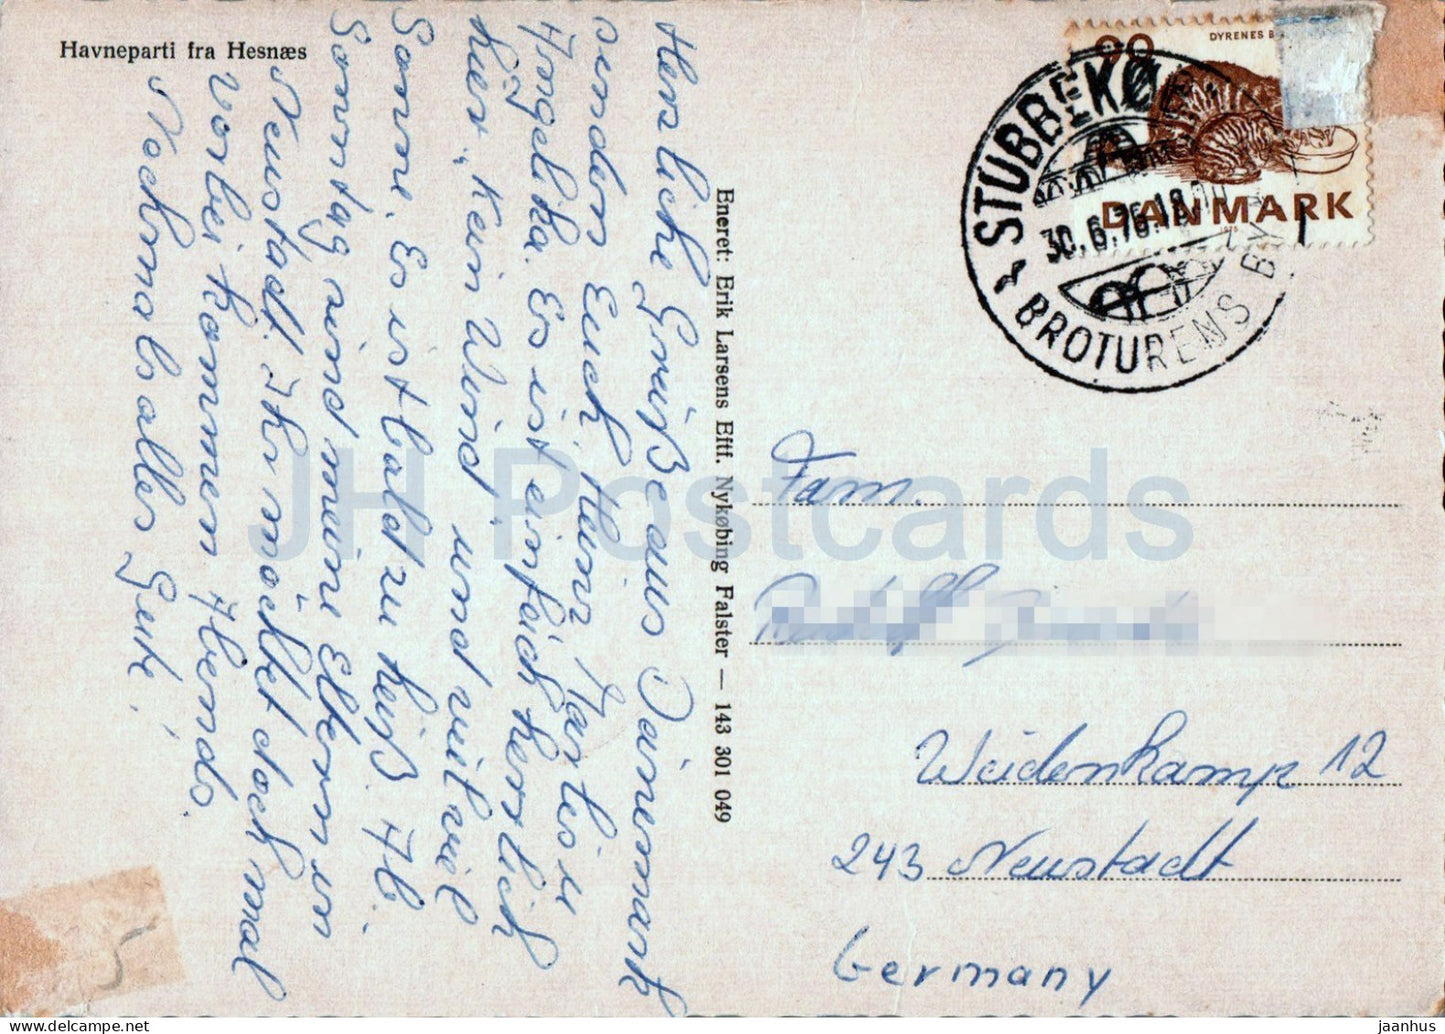 Havneparti fra Hesnæs
Herzliche Grüße aus Dänemark
senden Euch. Heinz, Karlis u
Angelika. Es ist einfach herrlich
hier, kein Wind, und viel
Sonne. Es ist bald zu heiß. Ab.
Sonntag sind meine Eltern in
Neustadt. Ihr möchtet doch mal
vorbei kommen Abends.
Nochmals alles Gute.
Eneret: Erik Larsens Eftf. Nykøbing Falster — 143 301 049
90
DYRENES
DANMARK
1975
STUBBEKØ
30.6.76.18
BROTURENS BY
Fam.
Weidenkamp 12
243 Neustadt
Germany
5
JH Postcards
delcampe.net
jaanhus